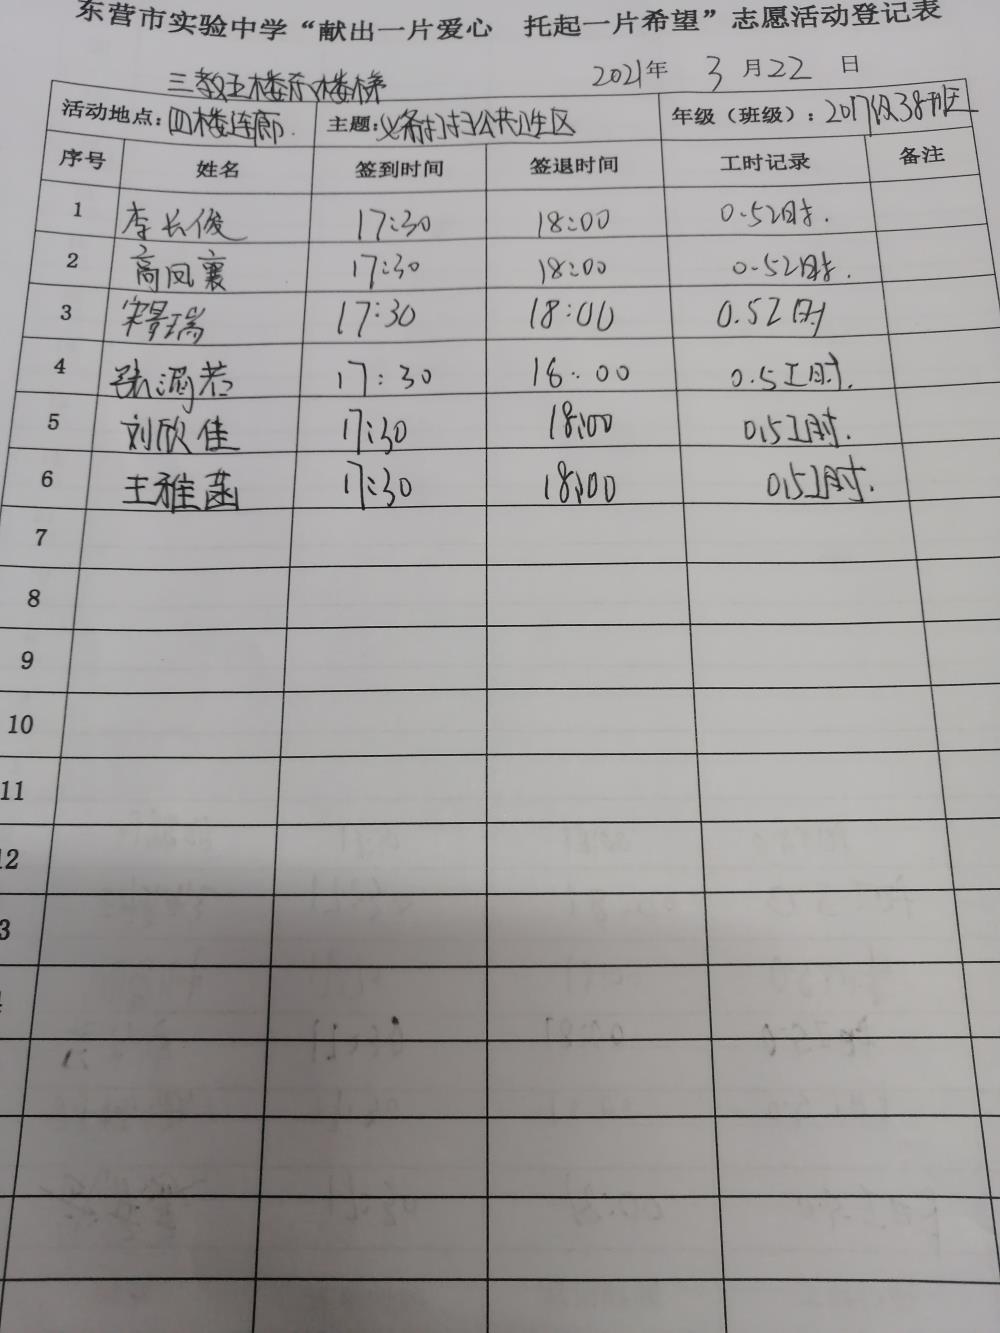 东营市实验中学“献出一片爱心 托起一片希望”志愿活动登记表
2021年 3月22日
三教五楼东楼梯
活动地点：四楼连廊. 主题：义务打扫公共卫生区 年级（班级）：2017级38班
序号 姓名 签到时间 签退时间 工时记录 备注
1 李长俊 17:30 18:00 0.5工时.
2 高凤襄 17:30 18:00 0.5工时.
3 宋景瑞 17:30 18:00 0.5工时
4 张 17:30 18:00 0.5工时.
5 刘欣佳 17:30 18:00 0.5工时.
6 王雅菡 17:30 18:00 0.5工时.
7
8
9
10
11
12
3